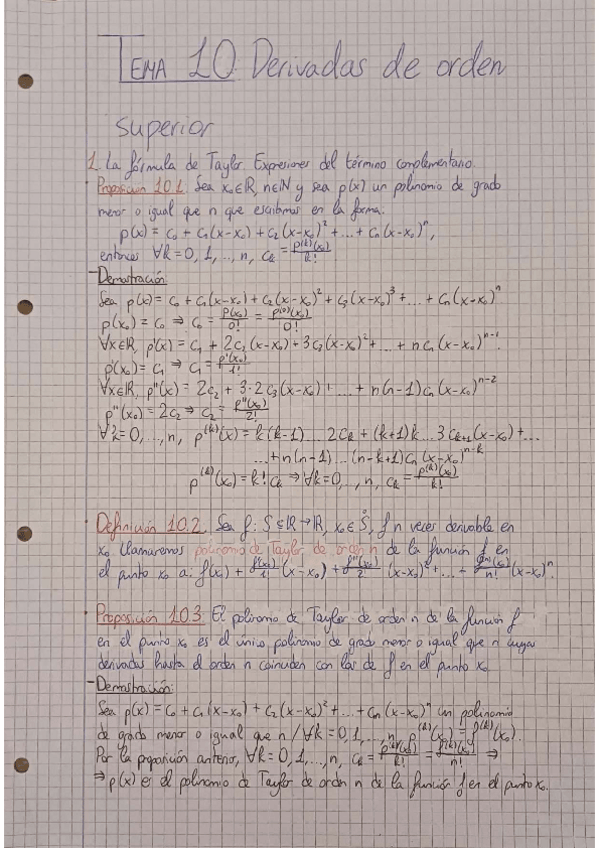 TEMA 10. Derivadas de orden
superior
1. La fórmula de Taylor. Expresiones del término complementario.
Proposición 10.1. Sea x₀∈ℝ, n∈ℕ y sea p(x) un polinomio de grado
menor o igual que n que escribimos en la forma.
p(x) = c₀ + c₁(x-x₀) + c₂(x-x₀)² + ... + cₙ(x-x₀)ⁿ,
entonces ∀k=0, 1, ..., n, cₖ = p⁽ᵏ⁾(x₀)/k!
-Demostración
Sea p(x) = c₀ + c₁(x-x₀) + c₂(x-x₀)² + c₃(x-x₀)³ + ... + cₙ(x-x₀)ⁿ
p(x₀) = c₀ ⇒ c₀ = p(x₀)/0! = p⁽⁰⁾(x₀)/0!
∀x∈ℝ, p'(x) = c₁ + 2c₂(x-x₀) + 3c₃(x-x₀)² + ... + n cₙ(x-x₀)ⁿ⁻¹.
p'(x₀) = c₁ ⇒ c₁ = p'(x₀)/1!
∀x∈ℝ, p''(x) = 2c₂ + 3·2 c₃(x-x₀) + ... + n(n-1)cₙ(x-x₀)ⁿ⁻²
p''(x₀) = 2c₂ ⇒ c₂ = p''(x₀)/2!
∀k=0, ..., n, p⁽ᵏ⁾(x) = k(k-1)...2cₖ + (k+1)k...3 cₖ₊₁(x-x₀) + ...
... + n(n-1)...(n-k+1)cₙ(x-x₀)ⁿ⁻ᵏ
p⁽ᵏ⁾(x₀) = k! cₖ ⇒ ∀k=0, ..., n, cₖ = p⁽ᵏ⁾(x₀)/k!
Definición 10.2. Sea f: S⊆ℝ→ℝ, x₀∈S̊, f n veces derivable en
x₀. Llamaremos polinomio de Taylor de orden n de la función f en
el punto x₀ a: f(x₀) + f'(x₀)/1 (x-x₀) + f''(x₀)/2 (x-x₀)² + ... + f⁽ⁿ⁾(x₀)/n! (x-x₀)ⁿ.
Proposición 10.3. El polinomio de Taylor de orden n de la función f
en el punto x₀ es el único polinomio de grado menor o igual que n cuyas
derivadas hasta el orden n coinciden con las de f en el punto x₀.
-Demostración:
Sea p(x) = c₀ + c₁(x-x₀) + c₂(x-x₀)² + ... + cₙ(x-x₀)ⁿ un polinomio
de grado menor o igual que n / ∀k=0, 1, ..., n, p⁽ᵏ⁾(x₀) = f⁽ᵏ⁾(x₀).
Por la proposición anterior, ∀k=0, 1, ..., n, cₖ = p⁽ᵏ⁾(x₀)/k! = f⁽ᵏ⁾(x₀)/k! ⇒
⇒ p(x) es el polinomio de Taylor de orden n de la función f en el punto x₀.